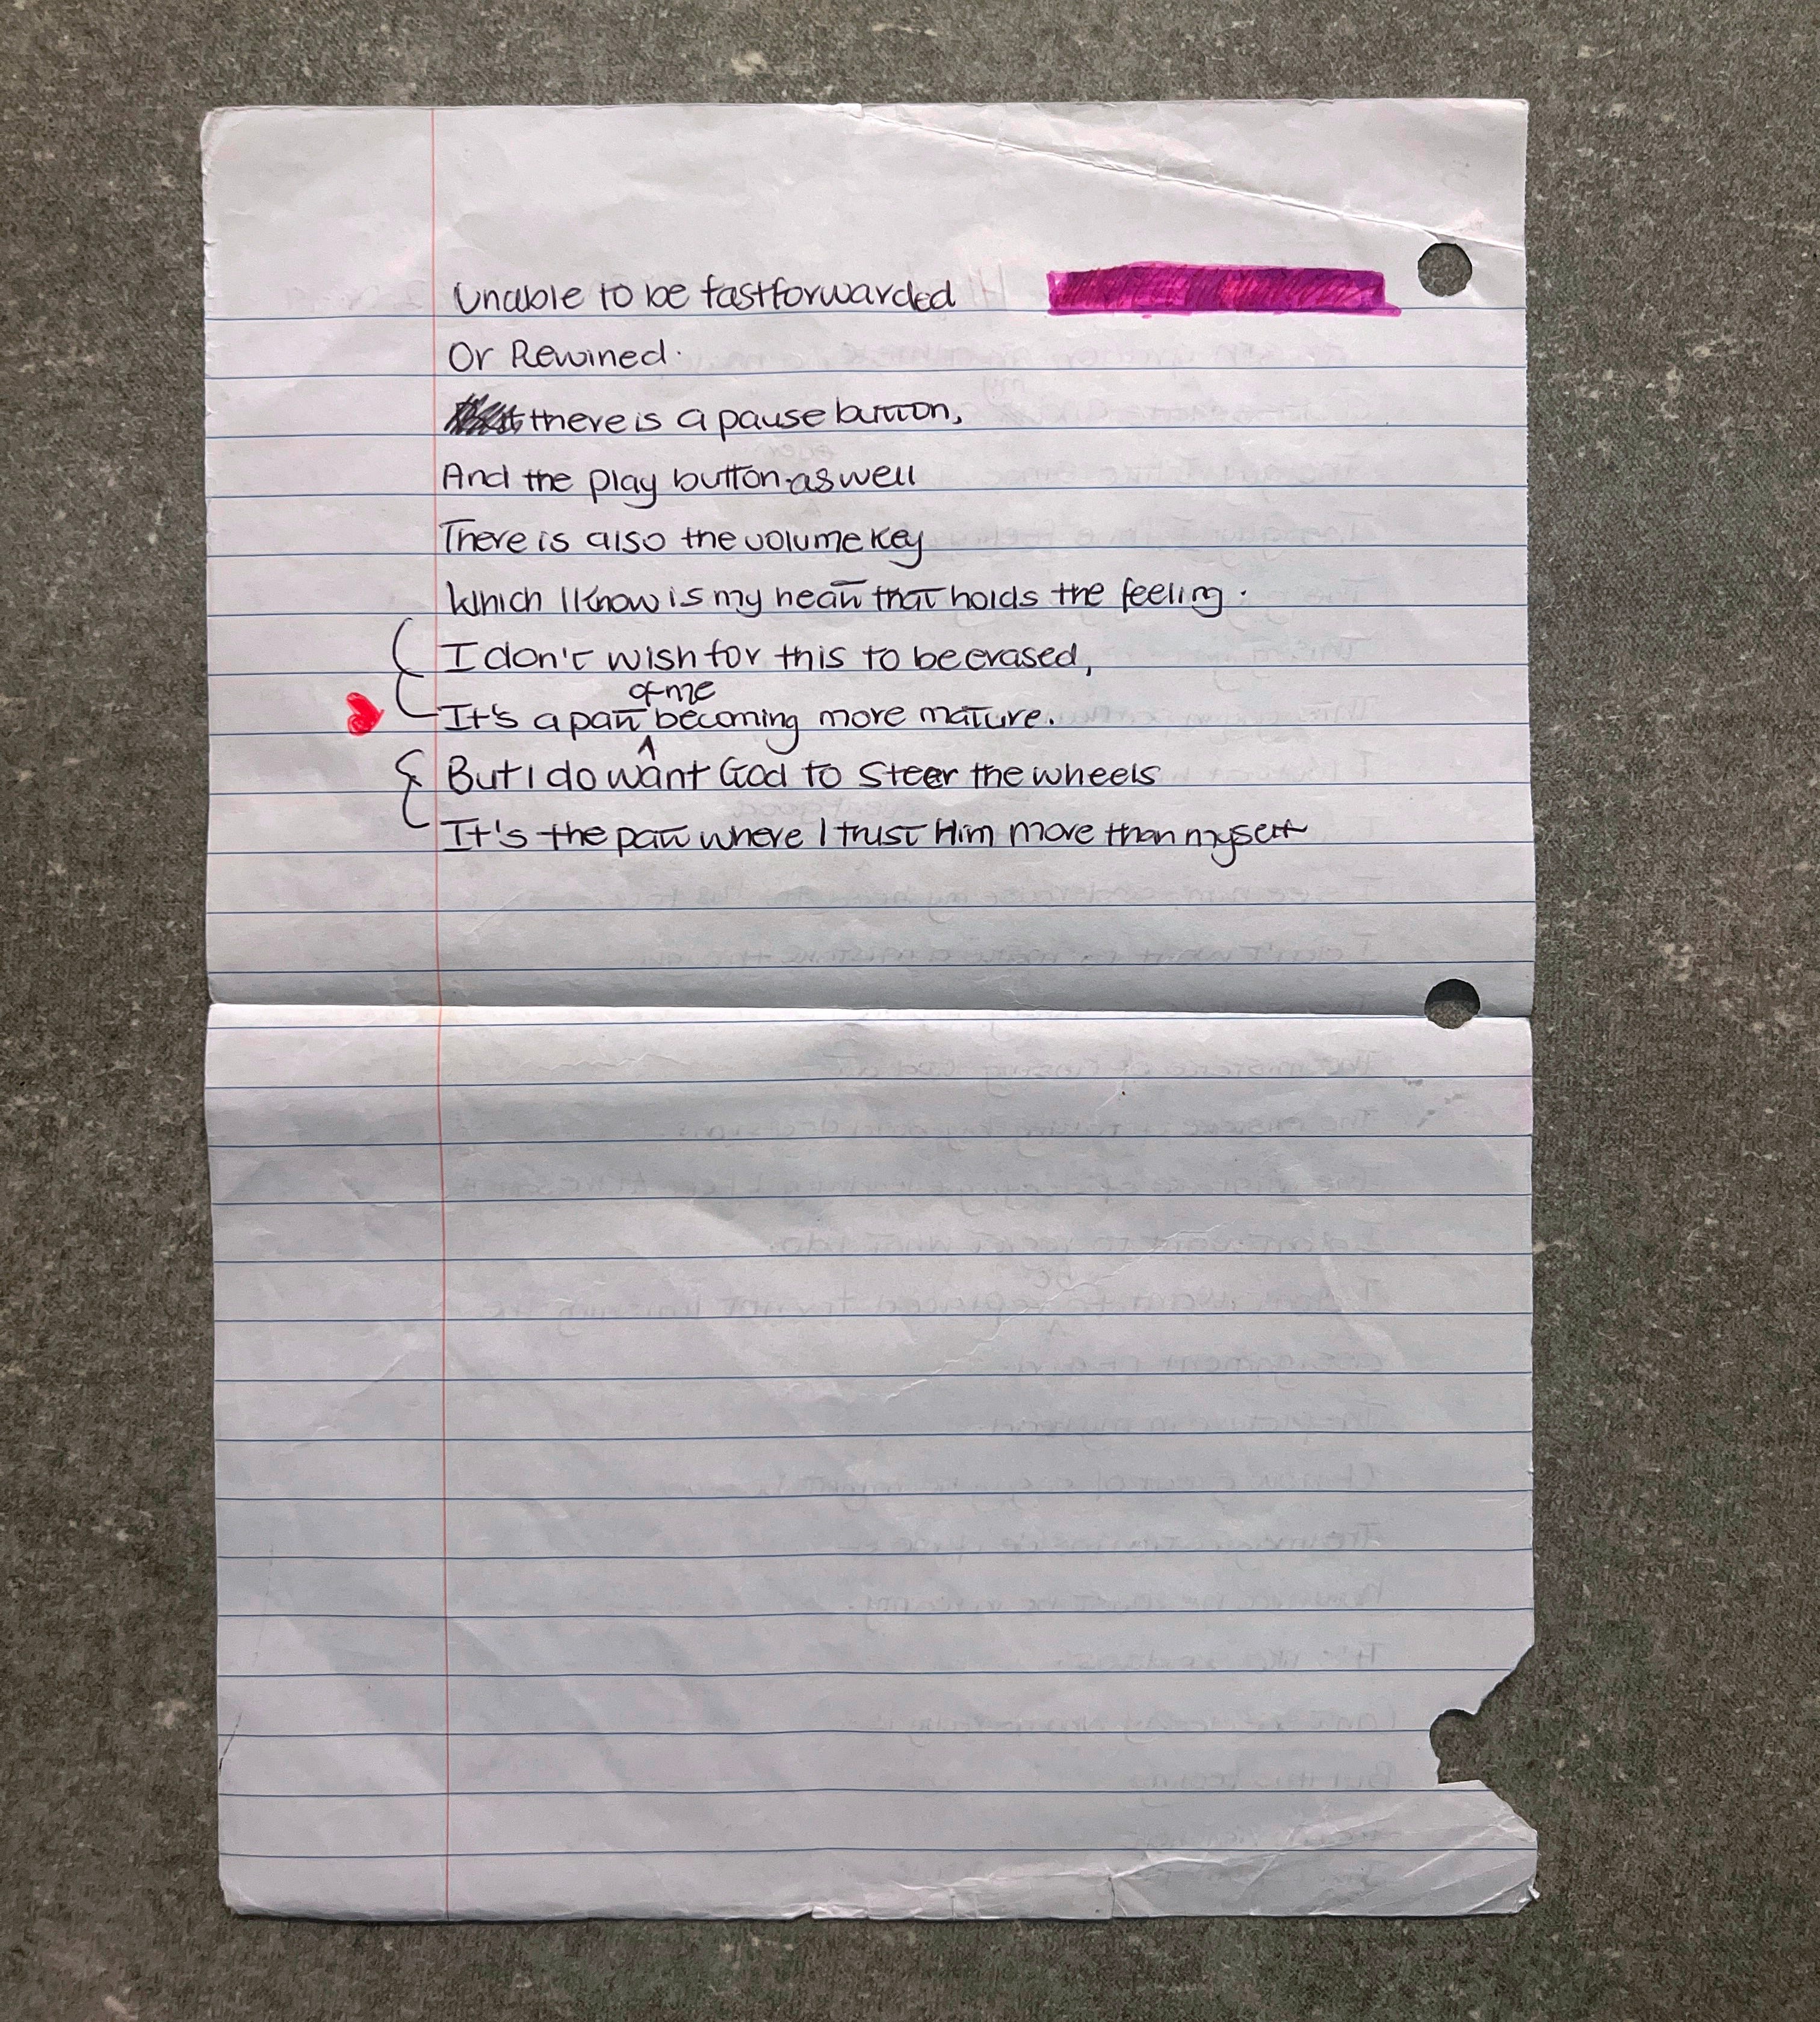 Unable to be fastforwarded
Or Rewined.
there is a pause button,
And the play button as well
There is also the volume key
Which I know is my heart that holds the feeling.
I don't wish for this to be erased,
It's a part of me becoming more mature.
But I do want God to steer the wheels
It's the part where I trust Him more than myself